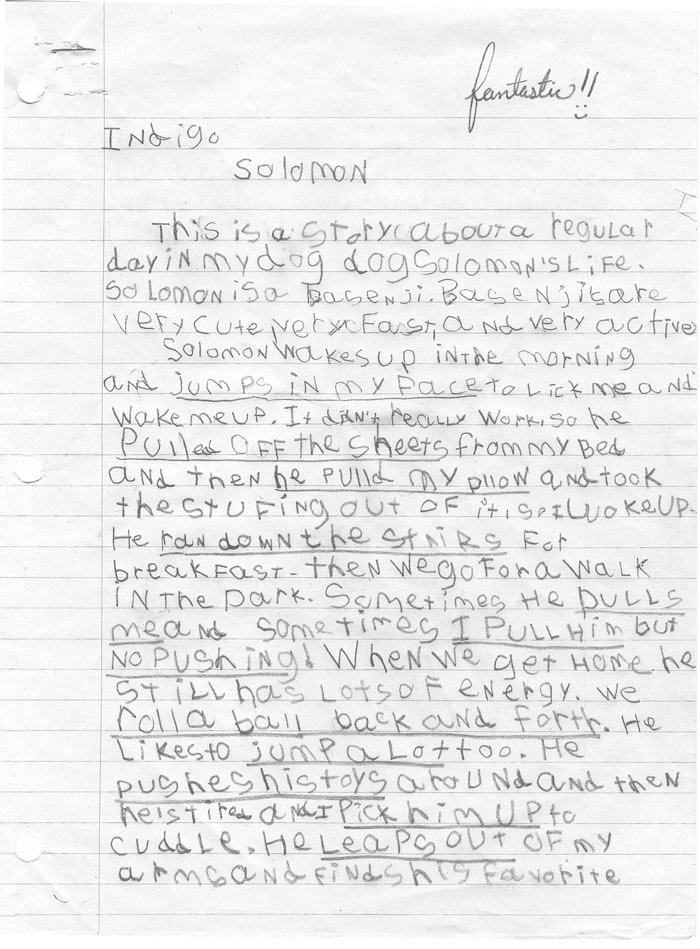 fantastic!!
Indigo
Solomon
This is a story about a regular
day in my dog dog Solomon's Life.
Solomon is a Basenji. Basenjis are
very cute, very fast, and very active
Solomon wakes up in the morning
and jumps in my face to Lick me and
wake me up. It didn't really work, so he
Pulled OFF the sheets from my Bed
and then he pulld my pllow and took
the stufing out of it, so I woke up.
He ran down the stairs For
breakfast. then we go for a walk
in the park. Sometimes He pulls
me and sometimes I PULL Him but
NO Pushing! When we get Home he
still has Lots of energy. we
roll a ball back and forth. He
Likes to jump a Lot too. He
pushes his toys around and then
he is tired and I Pick him UP to
cuddle. He Leaps out of my
arms and finds his favorite